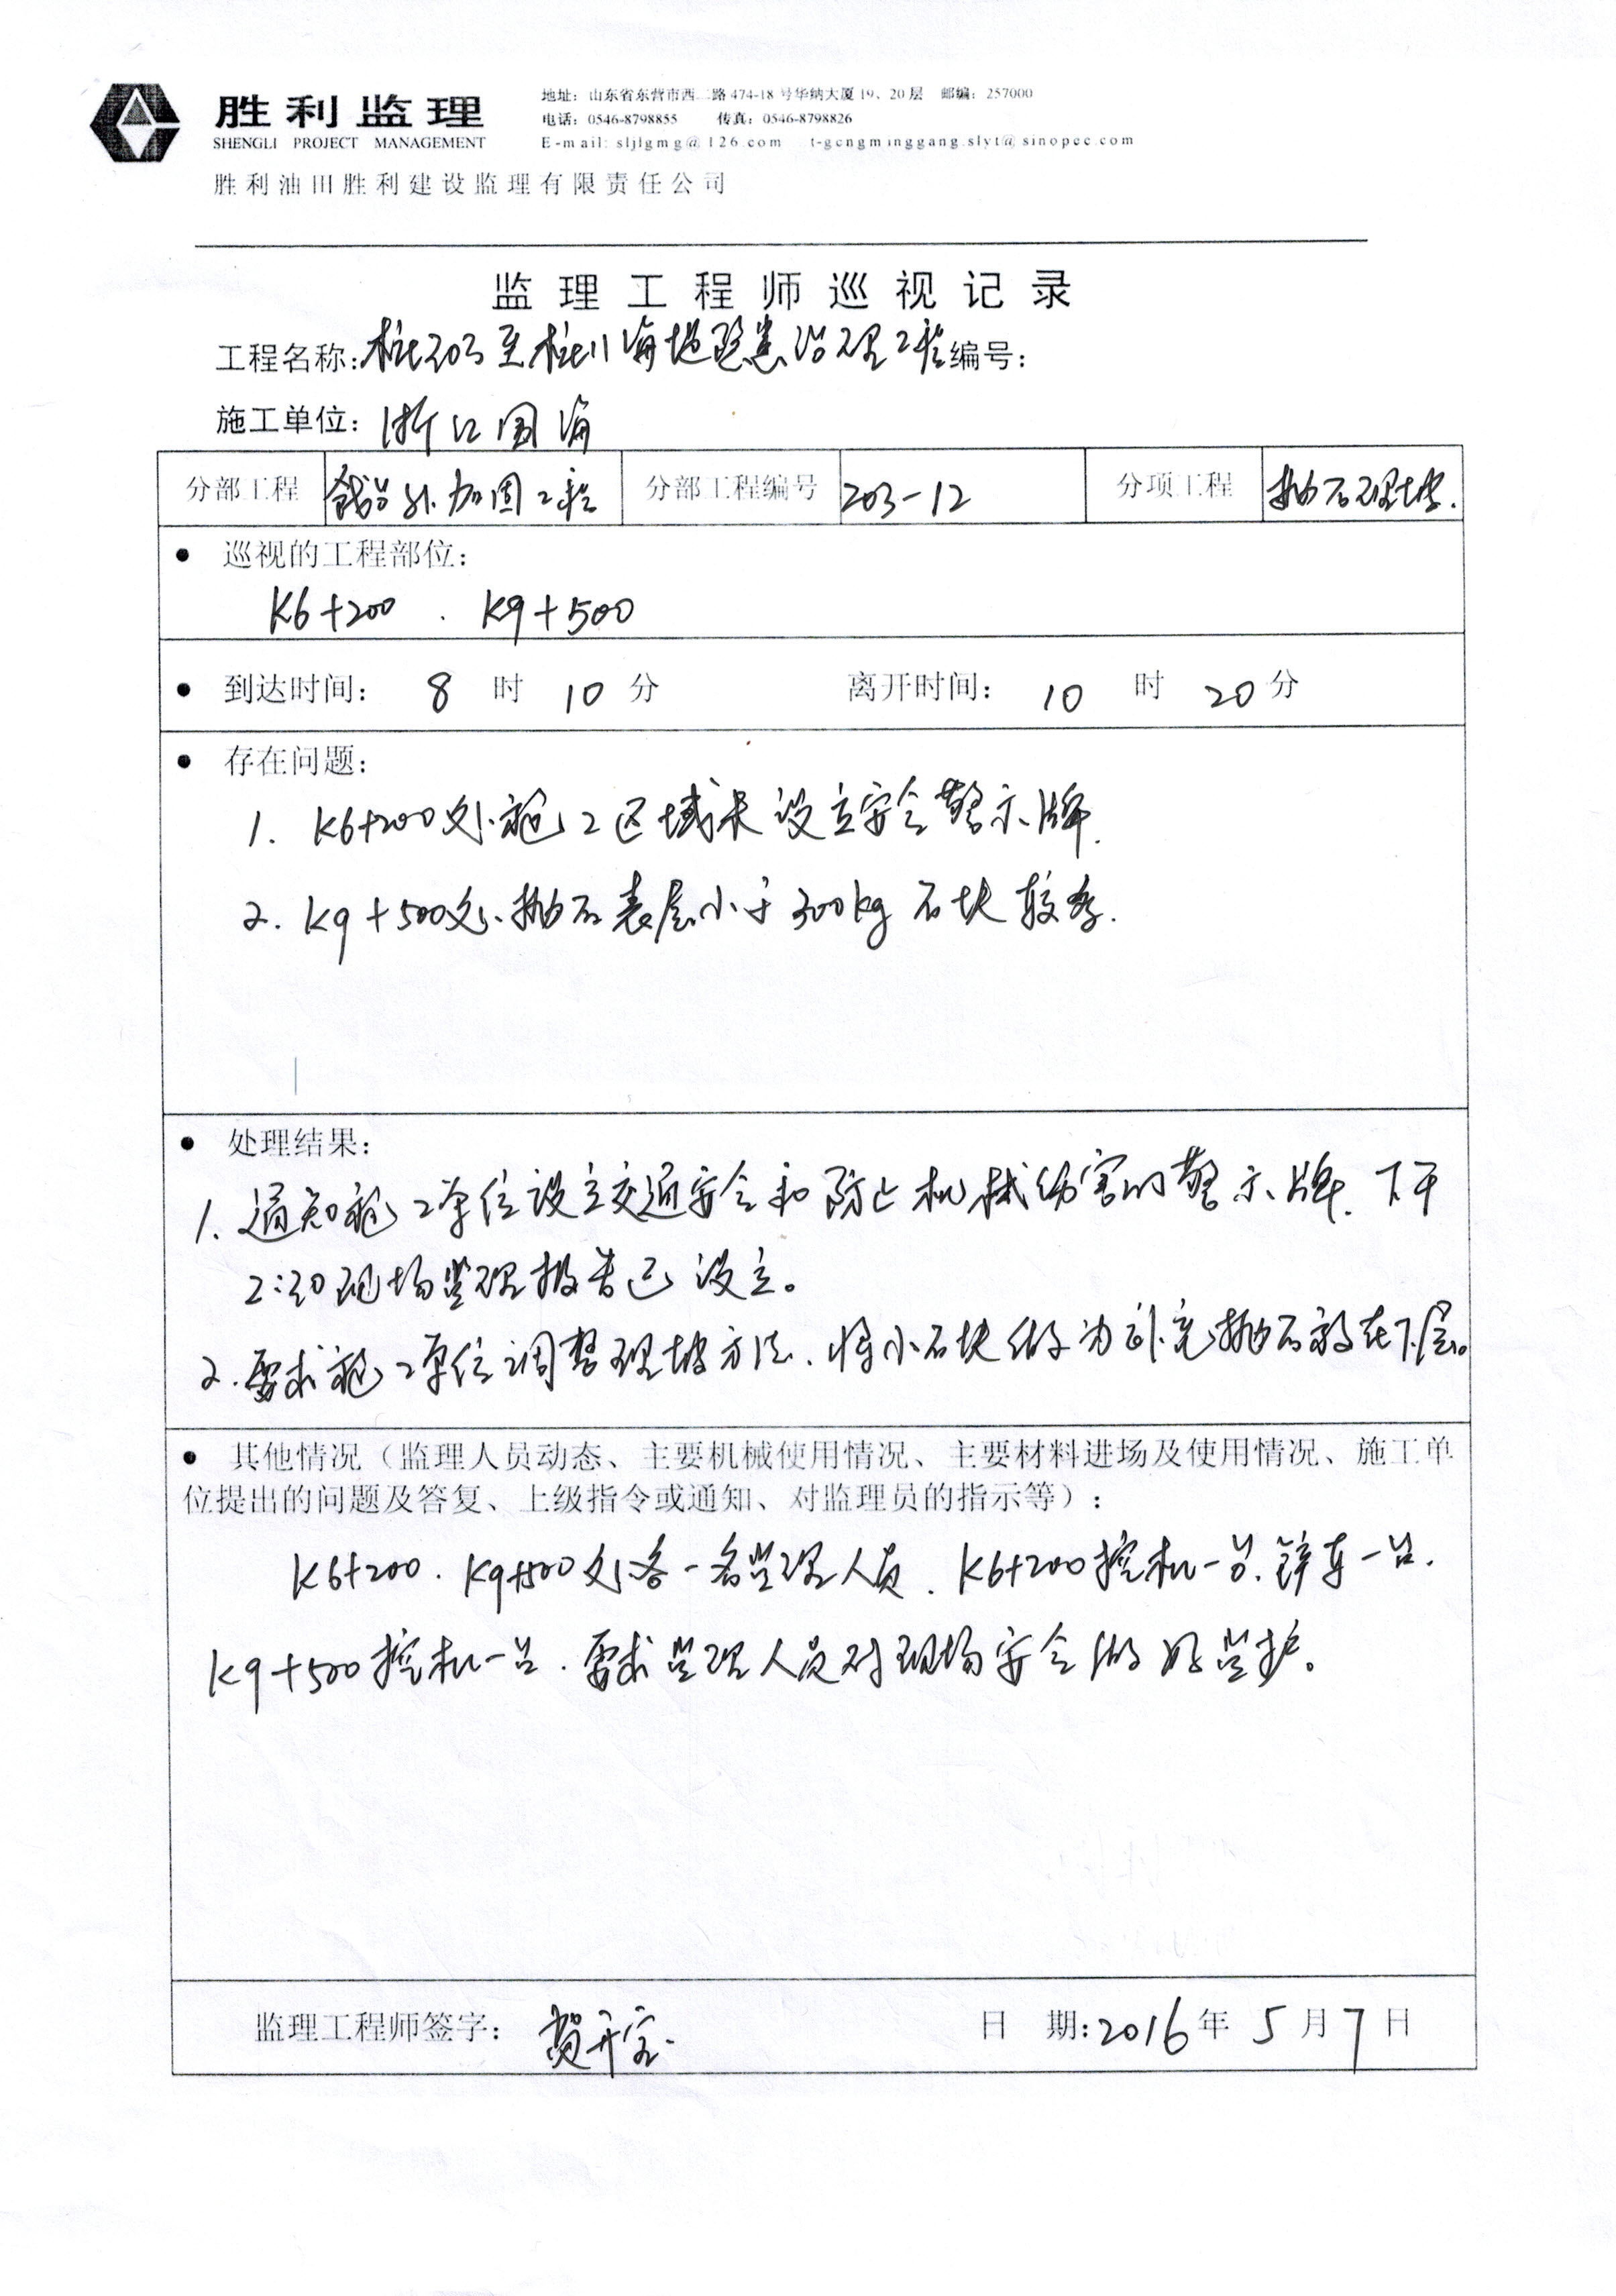 胜利监理
SHENGLI PROJECT MANAGEMENT
地址：山东省东营市西二路474-18号华纳大厦19、20层 邮编：257000
电话：0546-8798855 传真：0546-8798826
E-mail: sljlgmg@126.com t-gengminggang.slyt@sinopec.com
胜利油田胜利建设监理有限责任公司
监理工程师巡视记录
工程名称：桩203至桩11海堤隐患治理工程 编号：
施工单位：浙江围海
分部工程 加固工程 分部工程编号 203-12 分项工程 抛石理坡.
● 巡视的工程部位：
K6+200 . K9+500
● 到达时间： 8 时 10 分 离开时间： 10 时 20 分
● 存在问题：
1. K6+200处施工区域未设立安全警示牌.
2. K9+500处抛石表层小于300kg石块较多.
● 处理结果：
1. 通知施工单位设立交通安全和防止机械伤害的警示牌. 下午
2:30现场监理报告已设立。
2. 要求施工单位调整理坡方法.将小石块做为补充抛石放在下层。
● 其他情况（监理人员动态、主要机械使用情况、主要材料进场及使用情况、施工单
位提出的问题及答复、上级指令或通知、对监理员的指示等）：
K6+200 . K9+500处各一名监理人员. K6+200挖机一台.铲车一台.
K9+500挖机一台.要求监理人员对现场安全做好监护。
监理工程师签字： 贺开宝 日 期：2016年 5 月 7 日